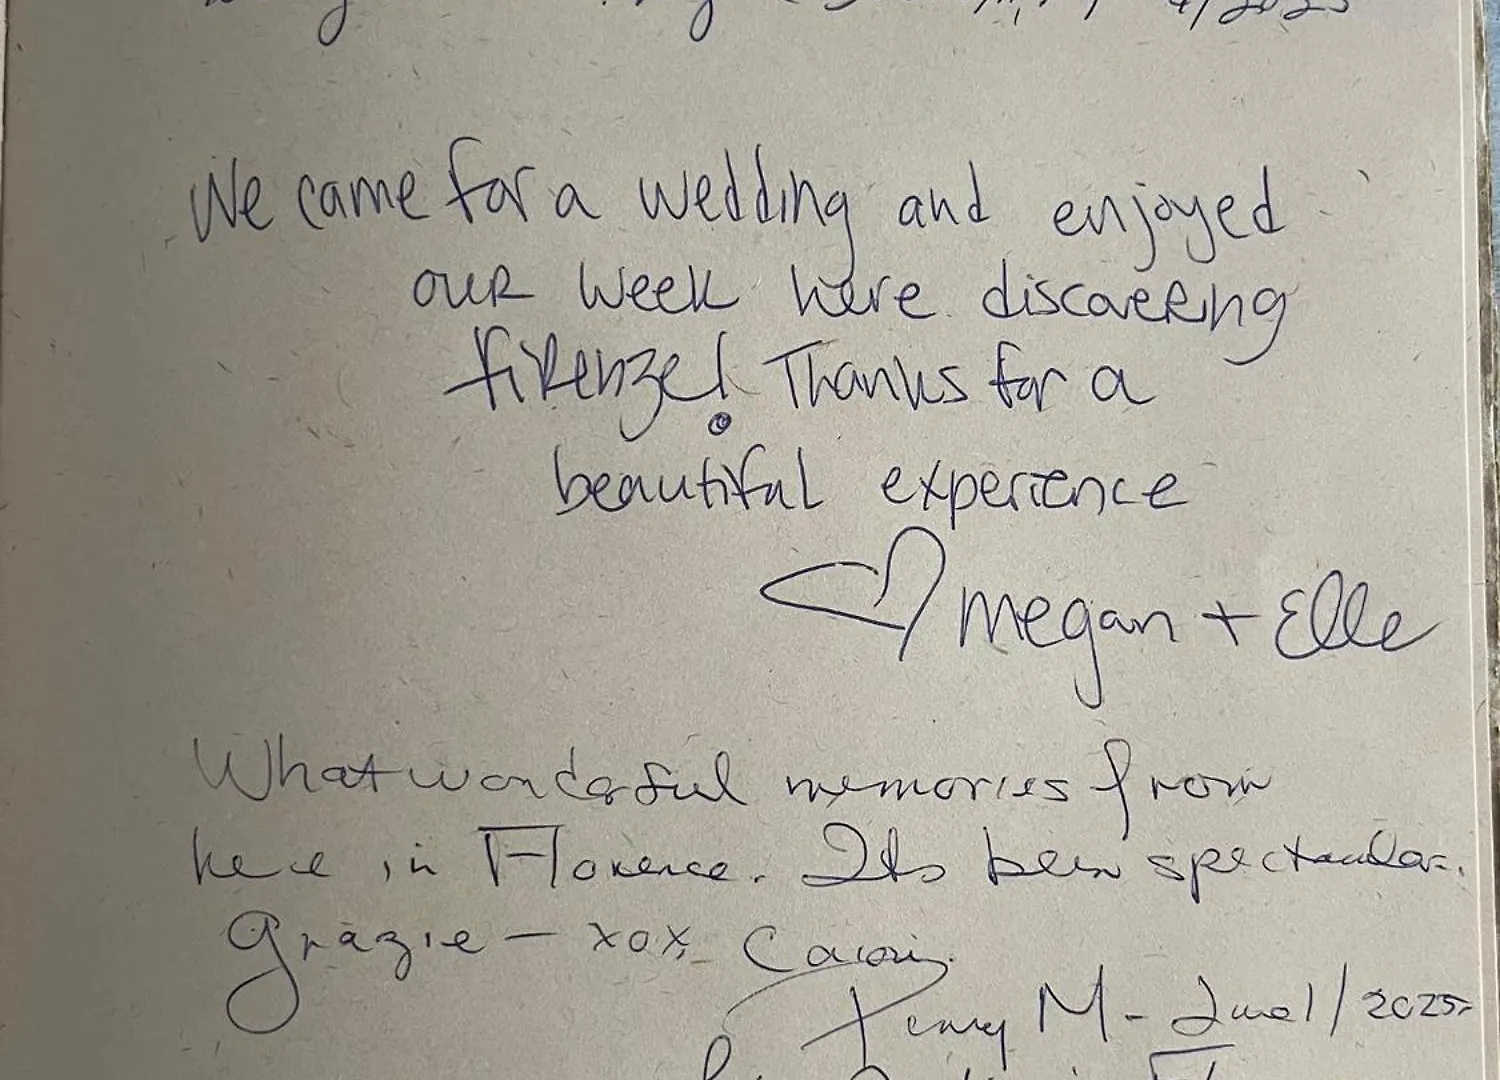 4/2025
We came for a wedding and enjoyed
our week here discovering
Firenze! Thanks for a
beautiful experience
♡ Megan + Elle
What wonderful memories from
here in Florence. Its been spectacular.
Grazie - xox,
Penny M - /2025